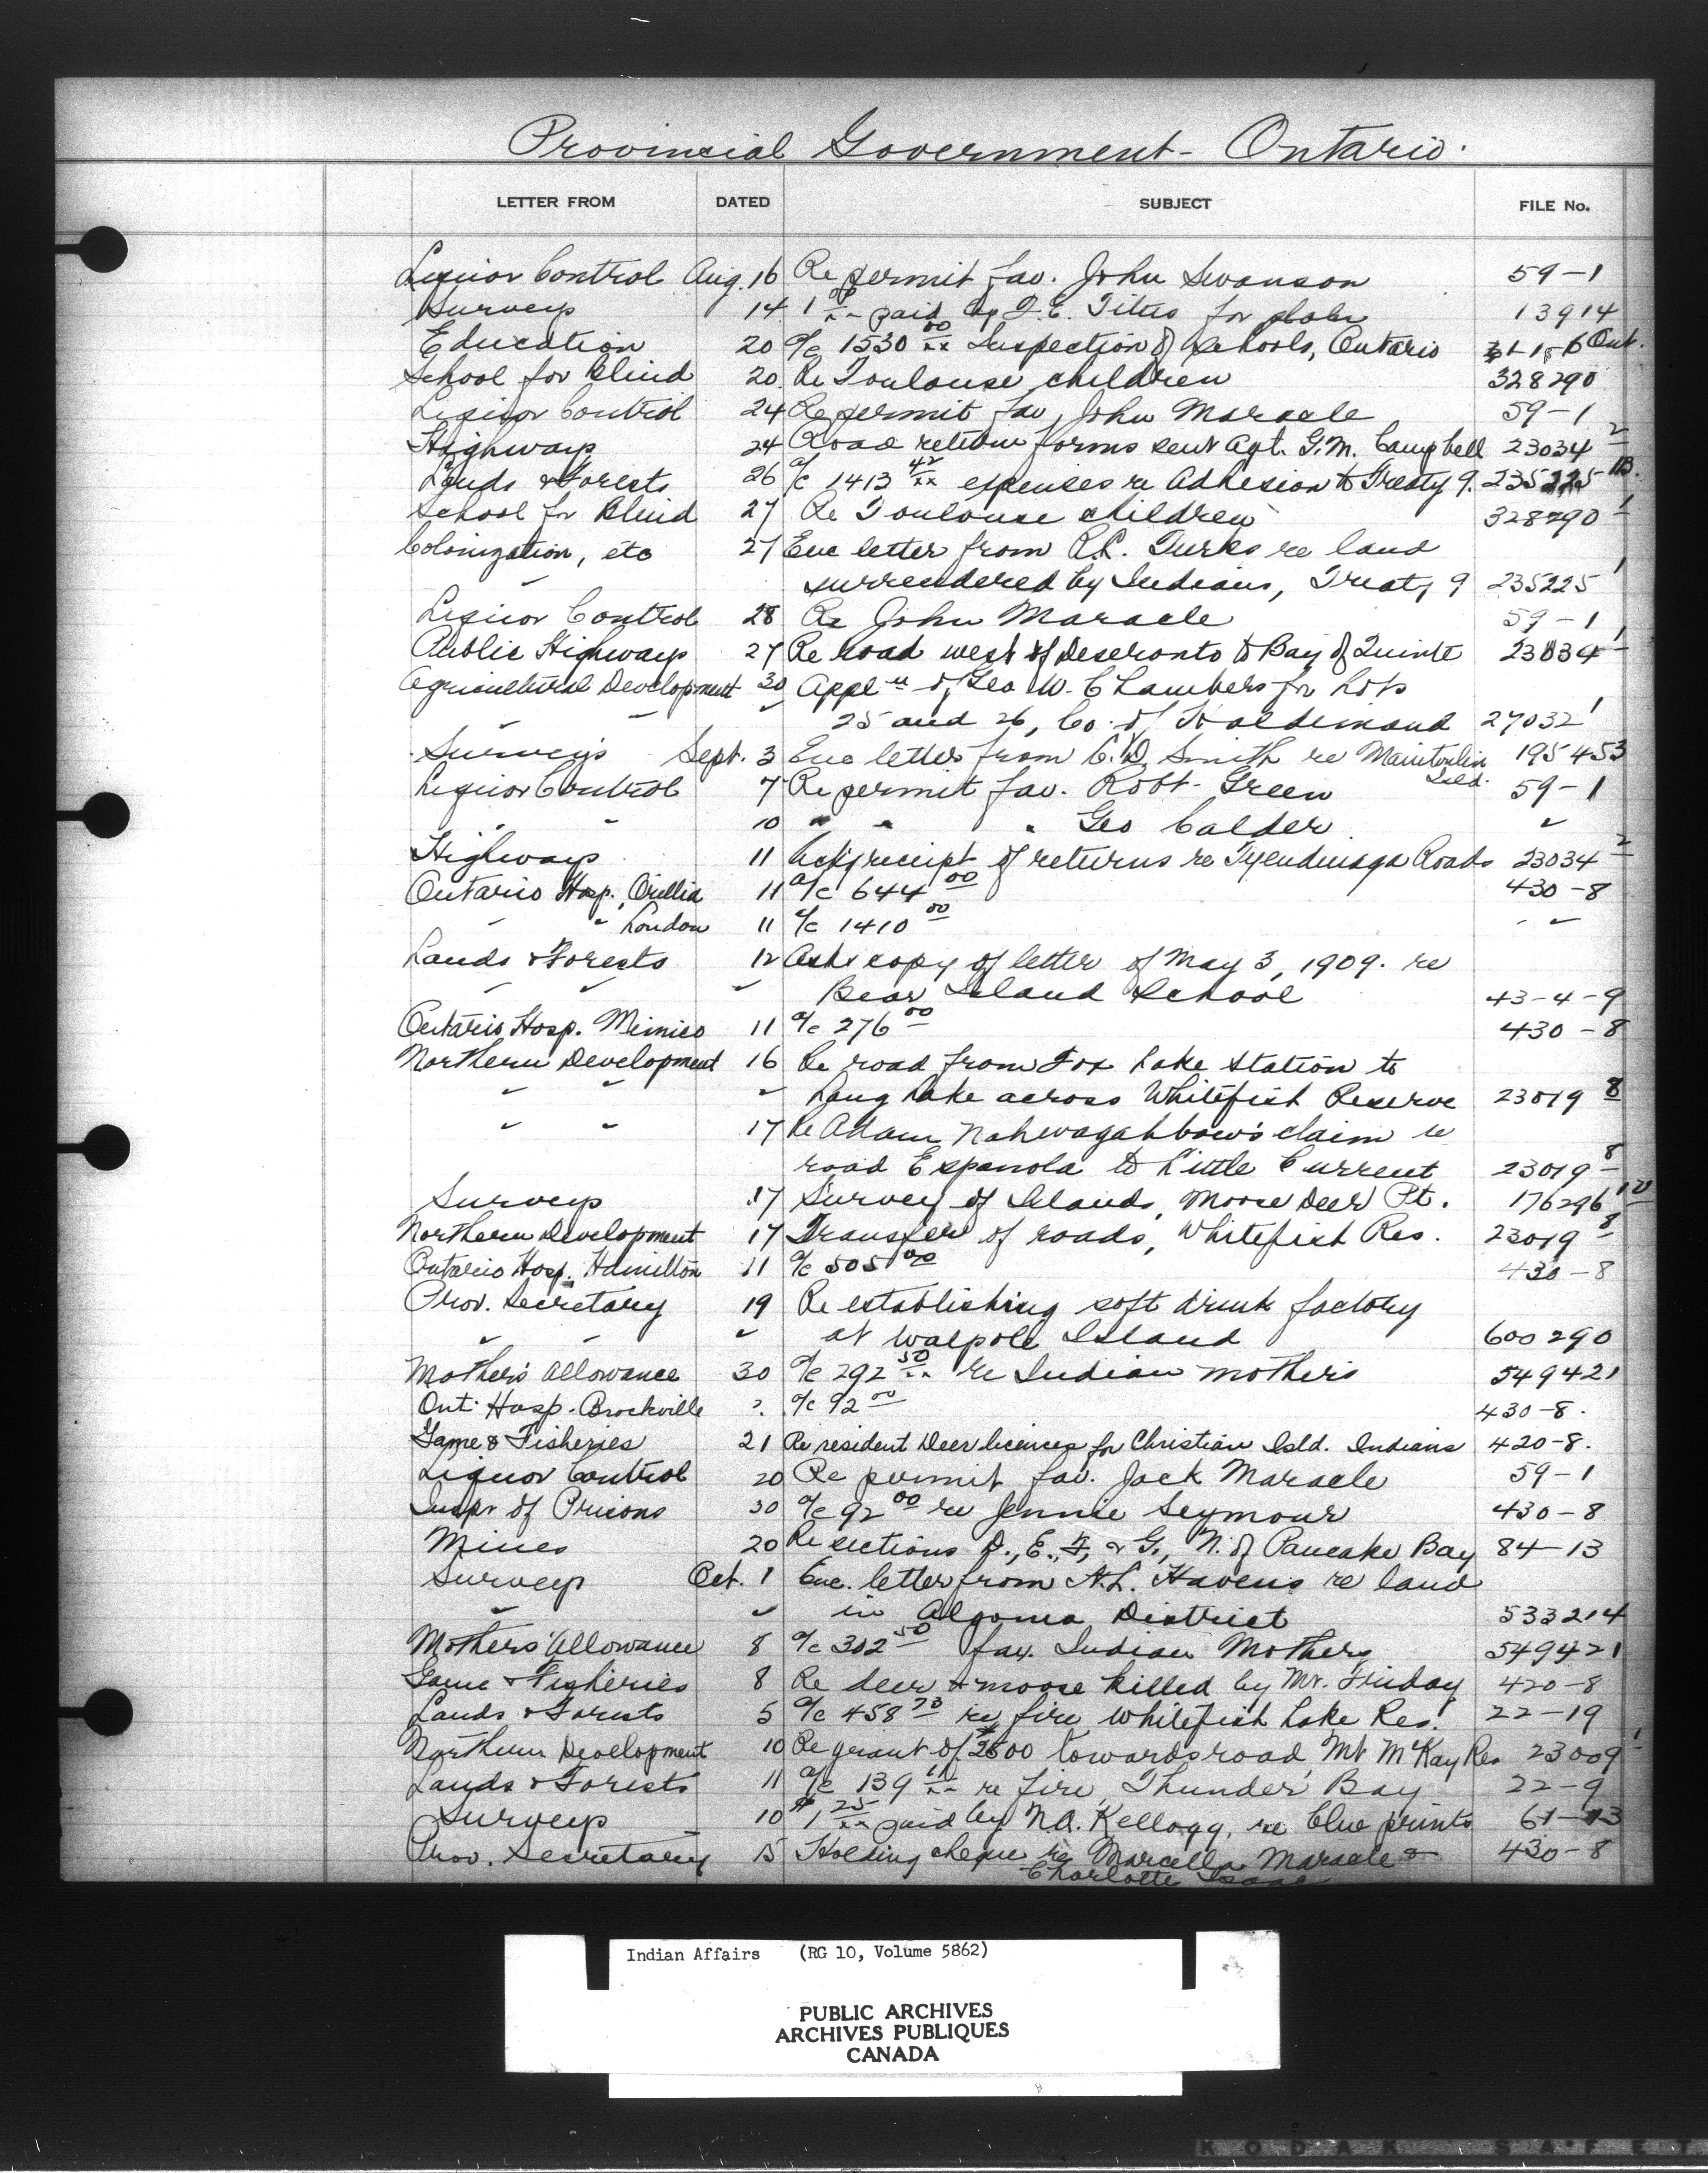 Provincial Government - Ontario.
LETTER FROM DATED SUBJECT FILE No.
Liquor Control Aug. 16 Re permit fav. John Swanson 59-1
Surveys 14 1 00/xx paid by F.E. Titus for 13914
Education 20 a/c 1530 00/xx Inspection of Schools, Ontario Ont.
School for Blind 20 Re Toulouse children 328290
Liquor Control 24 Re permit fav. John Maracle 59-1
Highways 24 Road return forms sent Agt. G.M. Campbell 23034 2
Lands & Forests 26 a/c 1413 42/xx expenses re Adhesion to Treaty 9. 235225 1B.
School for Blind 27 Re Toulouse children 328290 1
Colonization, etc 27 Enc letter from re land
surrendered by Indians, Treaty 9 235225 1
Liquor Control 28 Re John Maracle 59-1
Public Highways 27 Re road west of Deseronto to Bay of Quinte 23034 1
Agricultural Development 30 Appl'n of Geo W. Chambers for Lots
" " " 25 and 26, Co. of Haldimand 27032 1
Surveys Sept. 3 Enc letter from C.D. Smith re Manitoulin 195453
Isld.
Liquor Control 7 Re permit fav. Robt. Green 59-1
" " 10 " " " Geo Calder "
Highways 11 Ackg receipt of returns re Tyendinaga Roads 23034 2
Ontario Hosp., Orillia 11 a/c 644 00 430-8
" " London 11 a/c 1410 00 " "
Lands & Forests 12 Asks copy of letter of May 3, 1909. re
" " " Bear Island School 43-4-9
Ontario Hosp. Mimico 11 a/c 276 00 430-8
Northern Development 16 Re road from Fox Lake Station to
" " " Lang Lake across Whitefish Reserve 23019 8
" " 17 Re Adam Nahwagahbow's claim re
road Espanola to Little Current 23019 8
Surveys 17 Survey of Islands, Moose Deer Pt. 176296
Northern Development 17 Transfer of roads, Whitefish Res. 23019 8
Ontario Hosp. Hamilton 11 a/c 505 00 430-8
Prov. Secretary 19 Re establishing soft drink factory
" " " at Walpole Island 600290
Mother's Allowance 30 a/c 292 50/xx re Indian mothers 549421
Ont. Hosp. Brockville ?. a/c 92 00 430-8.
Game & Fisheries 21 Re resident Deer licences for Christian Isld. Indians 420-8.
Liquor Control 20 Re permit fav. Jack Maracle 59-1
Inspr of Prisons 30 a/c 92 00 re Jennie Seymour 430-8
Mines 20 Re sections D., E., F, & G., N. of Pancake Bay 84-13
Surveys Oct. 1 Enc. letter from A.L. Havens re land
" " in Algoma District 533214
Mothers' Allowance 8 a/c 302 50 fav. Indian Mothers 549421
Game & Fisheries 8 Re deer & moose killed by Mr. Friday 420-8
Lands & Forests 5 a/c 458 73 re fire Whitefish Lake Res. 22-19
Northern Development 10 Re grant of $2500 towards road Mt McKay Res 23009 1
Lands & Forests 11 a/c 139 11/xx re fire, Thunder Bay 22-9
Surveys 10 $1 25/xx paid by N.A. Kellogg, re blue prints 61-13
Prov. Secretary 15 Holding cheque re Marcella Maracle & 430-8
Charlotte Isaac
Indian Affairs (RG 10, Volume 5862)
PUBLIC ARCHIVES
ARCHIVES PUBLIQUES
CANADA
KODAK SAFET